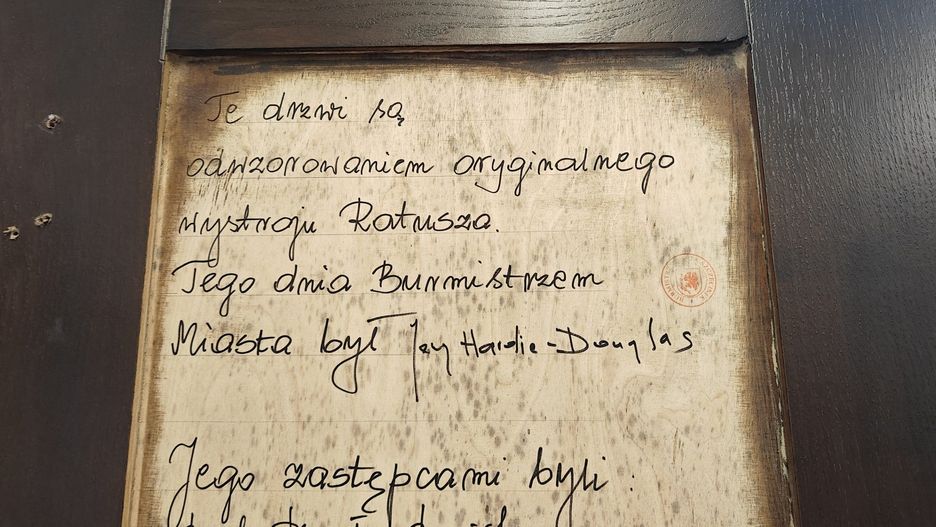 Te drzwi są
odwzorowaniem oryginalnego
wystroju Ratusza.
Tego dnia Burmistrzem
Miasta był Jerzy Hardie-Douglas
Jego zastępcami byli: